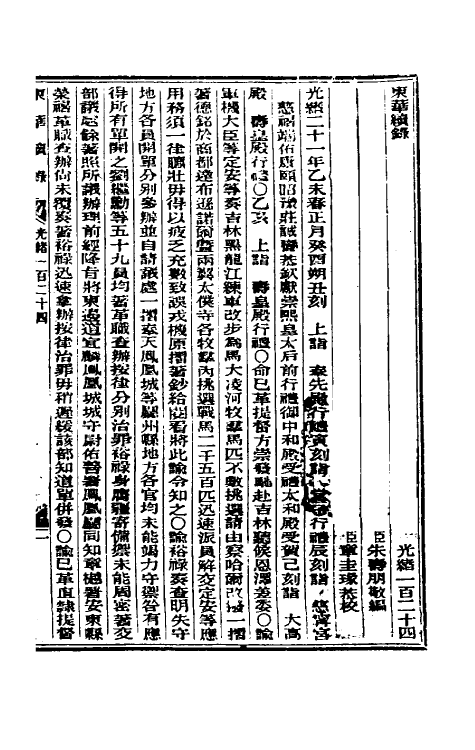 東華續錄 光緒一百二十四
臣朱壽朋敬編
臣章圭瑑恭校
光緒二十一年乙未春正月癸酉朔丑刻 上詣 奉先殿行禮寅刻詣 行禮辰刻詣 慈寧宮
慈禧端佑康頤昭豫莊誠壽恭欽獻崇熙皇太后前行禮御中和殿受禮太和殿受賀已刻詣 大高
殿 壽皇殿行禮〇乙亥 上詣 壽皇殿行禮〇命已革提督方崇發馳赴吉林聽候恩澤差委〇諭
軍機大臣等定安等奏吉林黑龍江練軍改步為馬大凌河牧羣馬匹不敷挑選請由察哈爾改撥一摺
著德銘於商都達布遜諾爾暨兩翼太僕寺各牧羣內挑選戰馬二千五百匹迅速派員解交定安等應
用務須一律臕壯毋得以疲乏充數致誤戎機原摺著鈔給閱看將此諭令知之〇諭裕祿奏查明失守
地方各員開單分別參辦並自請議處一摺奉天鳳凰城等廳州縣地方各官均未能竭力守禦咎有應
得所有單開之劉 等五十九員均著革職查辦按律分別治罪裕祿身膺疆寄備禦未能周密著交
部議處餘著照所議辦理前經降旨將東邊道宜麟鳳凰城城守尉佑善署鳳凰廳同知章樾署安東縣
榮禧革職查辦尚未覆奏著裕祿迅速拏辦按律治罪毋稍遲緩該部知道單併發〇諭已革直隸提督
東華續錄 光緒一百二十四 一